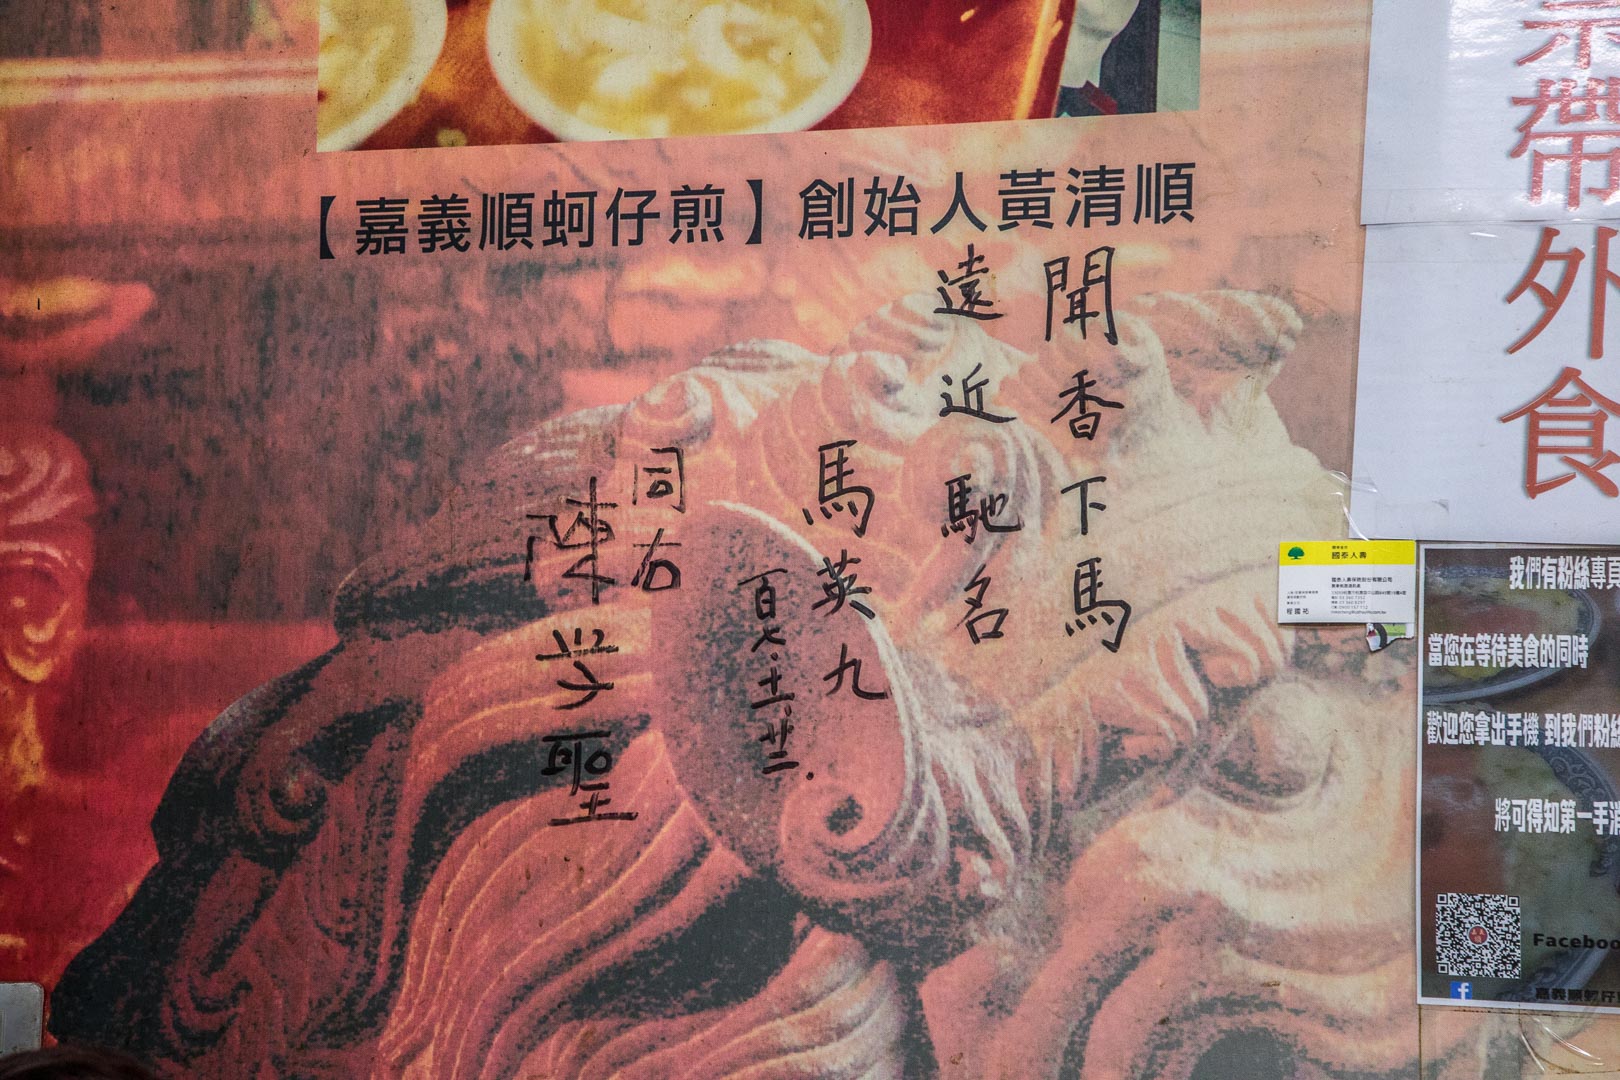 【嘉義順蚵仔煎】創始人黃清順
聞香下馬
遠近馳名
馬英九
百七.十一.廿二.
同右
陳学聖
帶
外食
國泰人壽
程國祐
我們有粉絲專頁
當您在等待美食的同時
歡迎您拿出手機 到我們粉絲
將可得知第一手消
Faceboo
嘉義順蚵仔